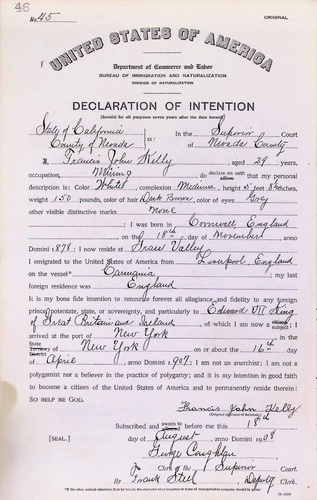 46
No. 45
ORIGINAL
UNITED STATES OF AMERICA
Department of Commerce and Labor
BUREAU OF IMMIGRATION AND NATURALIZATION
DIVISION OF NATURALIZATION
DECLARATION OF INTENTION
(Invalid for all purposes seven years after the date hereof)
State of California
County of Nevada ss: In the Superior Court of Nevada County
I, Francis John Kelly, aged 29 years,
occupation, Mining, do declare on oath affirm that my personal
description is: Color White, complexion Medium, height 5 feet 8 inches,
weight 150 pounds, color of hair Dark Brown, color of eyes Grey
other visible distinctive marks None
; I was born in Cornwall England
on the 18th day of November, anno
Domini 1878; I now reside at Grass Valley
I emigrated to the United States of America from Liverpool England
on the vessel Carmania; my last
foreign residence was England
It is my bona fide intention to renounce forever all allegiance and fidelity to any foreign
prince, potentate, state, or sovereignty, and particularly to Edward VII King
of Great Britain and Ireland, of which I am now a subject; I
arrived at the port of New York, in the
State Territory District of New York on or about the 16th day
of April, anno Domini 1907; I am not an anarchist; I am not a
polygamist nor a believer in the practice of polygamy; and it is my intention in good faith
to become a citizen of the United States of America and to permanently reside therein:
SO HELP ME GOD.
Francis John Kelly
(Original signature of declarant)
Subscribed and sworn to before me this 18th
[SEAL.] day of August, anno Domini 1908
George Coughlan
Clerk of the Superior Court.
By Frank Steel Deputy Clerk.